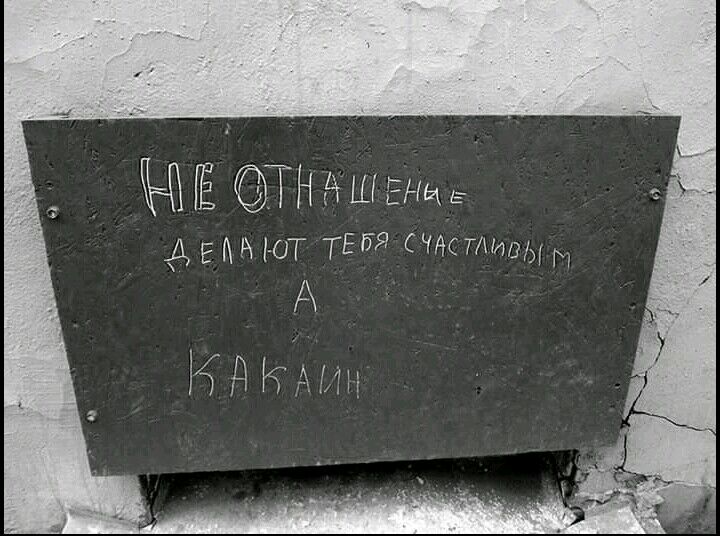 НЕ ОТНАШЕНИЕ
ДЕЛАЮТ ТЕБЯ СЧАСТЛИВЫМ
А
КАКАИН